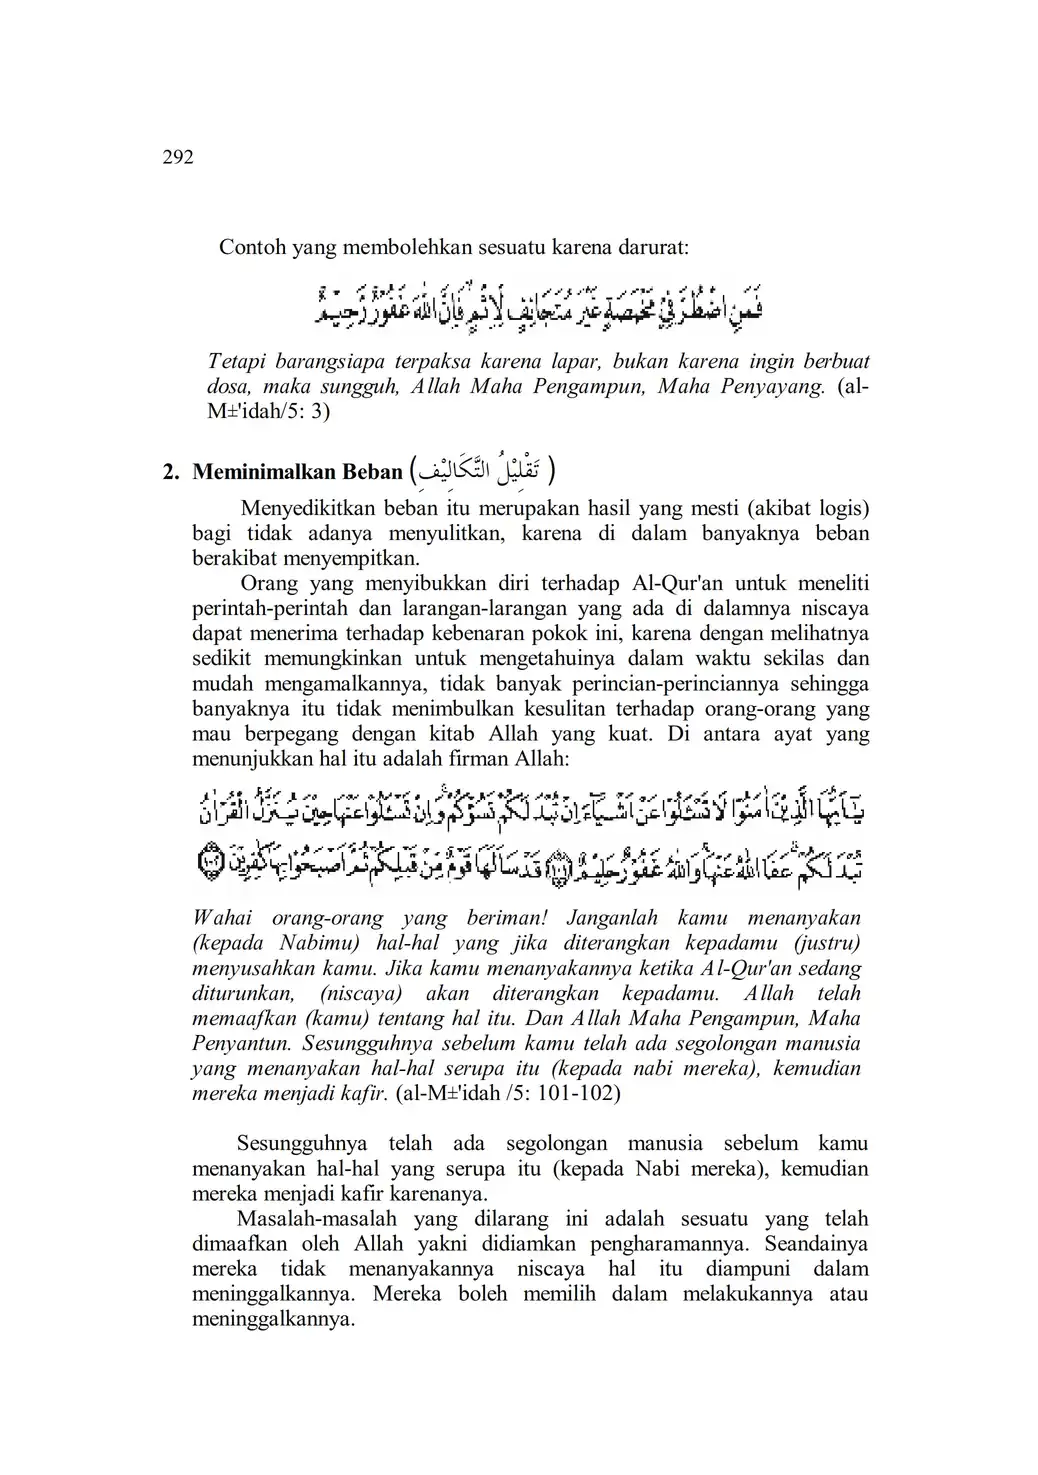 292
Contoh yang membolehkan sesuatu karena darurat:
فَمَنِ اضْطُرَّ فِيْ مَخْمَصَةٍ غَيْرَ مُتَجَانِفٍ لِاِثْمٍۙ فَاِنَّ اللّٰهَ غَفُوْرٌ رَّحِيْمٌ
Tetapi barangsiapa terpaksa karena lapar, bukan karena ingin berbuat
dosa, maka sungguh, Allah Maha Pengampun, Maha Penyayang. (al-
M±'idah/5: 3)
2. Meminimalkan Beban (تَقْلِيْلُ التَّكَالِيْفِ )
Menyedikitkan beban itu merupakan hasil yang mesti (akibat logis)
bagi tidak adanya menyulitkan, karena di dalam banyaknya beban
berakibat menyempitkan.
Orang yang menyibukkan diri terhadap Al-Qur'an untuk meneliti
perintah-perintah dan larangan-larangan yang ada di dalamnya niscaya
dapat menerima terhadap kebenaran pokok ini, karena dengan melihatnya
sedikit memungkinkan untuk mengetahuinya dalam waktu sekilas dan
mudah mengamalkannya, tidak banyak perincian-perinciannya sehingga
banyaknya itu tidak menimbulkan kesulitan terhadap orang-orang yang
mau berpegang dengan kitab Allah yang kuat. Di antara ayat yang
menunjukkan hal itu adalah firman Allah:
يٰٓاَيُّهَا الَّذِيْنَ اٰمَنُوْا لَا تَسْـَٔلُوْا عَنْ اَشْيَاۤءَ اِنْ تُبْدَ لَكُمْ تَسُؤْكُمْۚ وَاِنْ تَسْـَٔلُوْا عَنْهَا حِيْنَ يُنَزَّلُ الْقُرْاٰنُ
تُبْدَ لَكُمْۗ عَفَا اللّٰهُ عَنْهَاۗ وَاللّٰهُ غَفُوْرٌ حَلِيْمٌ ﴿١٠١﴾ قَدْ سَاَلَهَا قَوْمٌ مِّنْ قَبْلِكُمْ ثُمَّ اَصْبَحُوْا بِهَا كٰفِرِيْنَ ﴿١٠٢﴾
Wahai orang-orang yang beriman! Janganlah kamu menanyakan
(kepada Nabimu) hal-hal yang jika diterangkan kepadamu (justru)
menyusahkan kamu. Jika kamu menanyakannya ketika Al-Qur'an sedang
diturunkan, (niscaya) akan diterangkan kepadamu. Allah telah
memaafkan (kamu) tentang hal itu. Dan Allah Maha Pengampun, Maha
Penyantun. Sesungguhnya sebelum kamu telah ada segolongan manusia
yang menanyakan hal-hal serupa itu (kepada nabi mereka), kemudian
mereka menjadi kafir. (al-M±'idah /5: 101-102)
Sesungguhnya telah ada segolongan manusia sebelum kamu
menanyakan hal-hal yang serupa itu (kepada Nabi mereka), kemudian
mereka menjadi kafir karenanya.
Masalah-masalah yang dilarang ini adalah sesuatu yang telah
dimaafkan oleh Allah yakni didiamkan pengharamannya. Seandainya
mereka tidak menanyakannya niscaya hal itu diampuni dalam
meninggalkannya. Mereka boleh memilih dalam melakukannya atau
meninggalkannya.